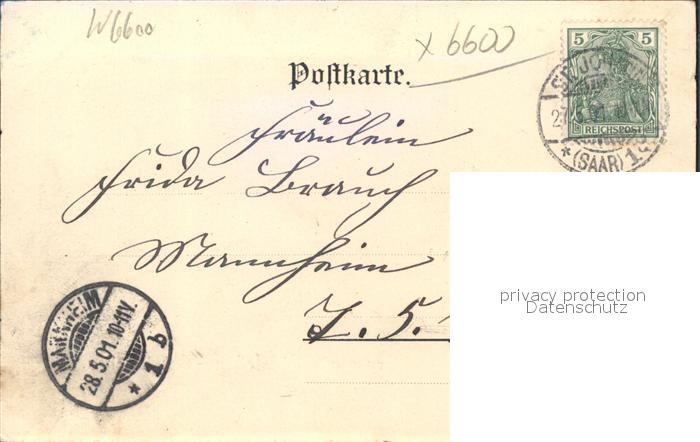 W6600
x 6600
Postkarte.
5 5
REICHSPOST
ST. JOHANN
* (SAAR) 1
Fräulein
Frida Brauch
Mannheim
J. 5.
MANNHEIM
28.5.01. 10-11V.
* 1 b
privacy protection
Datenschutz